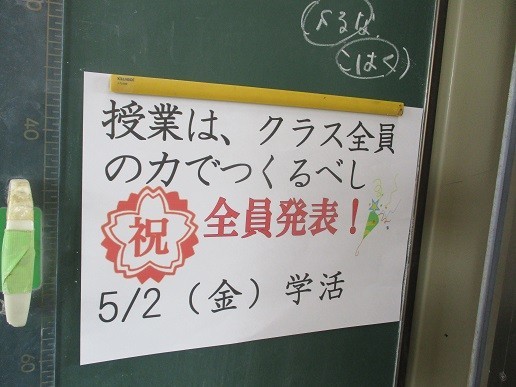 こはく
授業は、クラス全員
の力でつくるべし
祝 全員発表！
5/2（金）学活
40
60